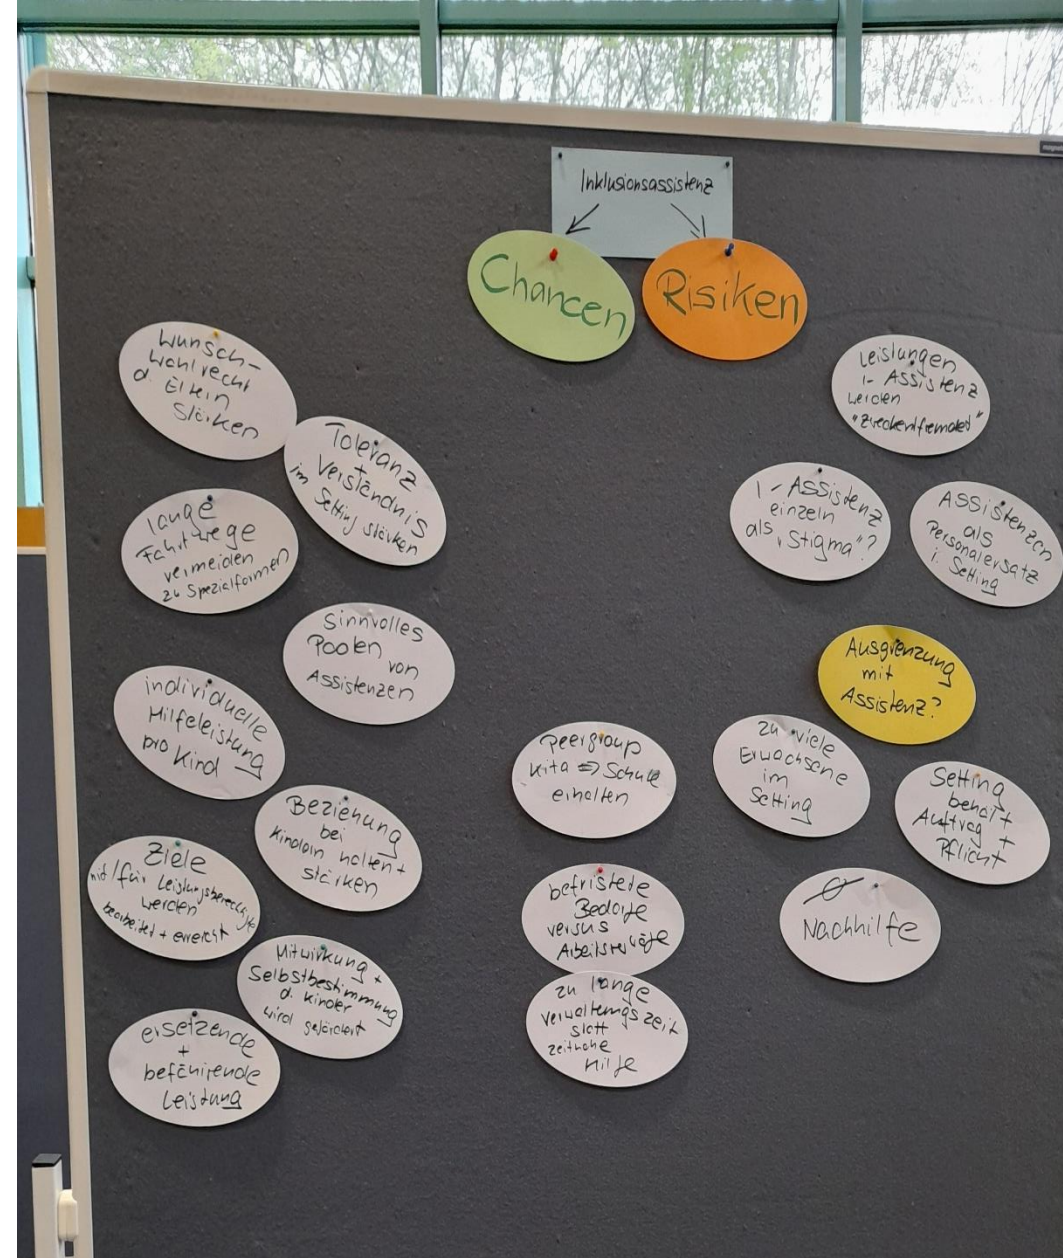 Inklusionsassistenz
Chancen
Risiken
Wunsch-
Wahlrecht
d. Eltern
stärken
Toleranz
+
Verständnis
im Setting stärken
lange
Fahrtwege
vermeiden
zu Spezialformen
Sinnvolles
Poolen von
Assistenzen
individuelle
Hilfeleistung
pro Kind
Beziehung
bei
Kindern halten +
stärken
Ziele
mit/für Leistungsberechtigte
werden
bearbeitet + erreicht
Mitwirkung +
Selbstbestimmung
d. Kinder
wird gefördert
ersetzende
+
befähigende
Leistung
Peergroup
Kita => Schule
erhalten
befristete
Bedarfe
versus
Arbeitsverträge
zu lange
Verwaltungszeit
statt
zeitnahe
Hilfe
Leistungen
I-Assistenz
werden
"zweckentfremdet"
I-Assistenz
einzeln
als „Stigma"?
Assistenzen
als
Personalersatz
i. Setting
Ausgrenzung
mit
Assistenz?
zu viele
Erwachsene
im
Setting
Setting
behält
Auftrag +
Pflicht
Nachhilfe